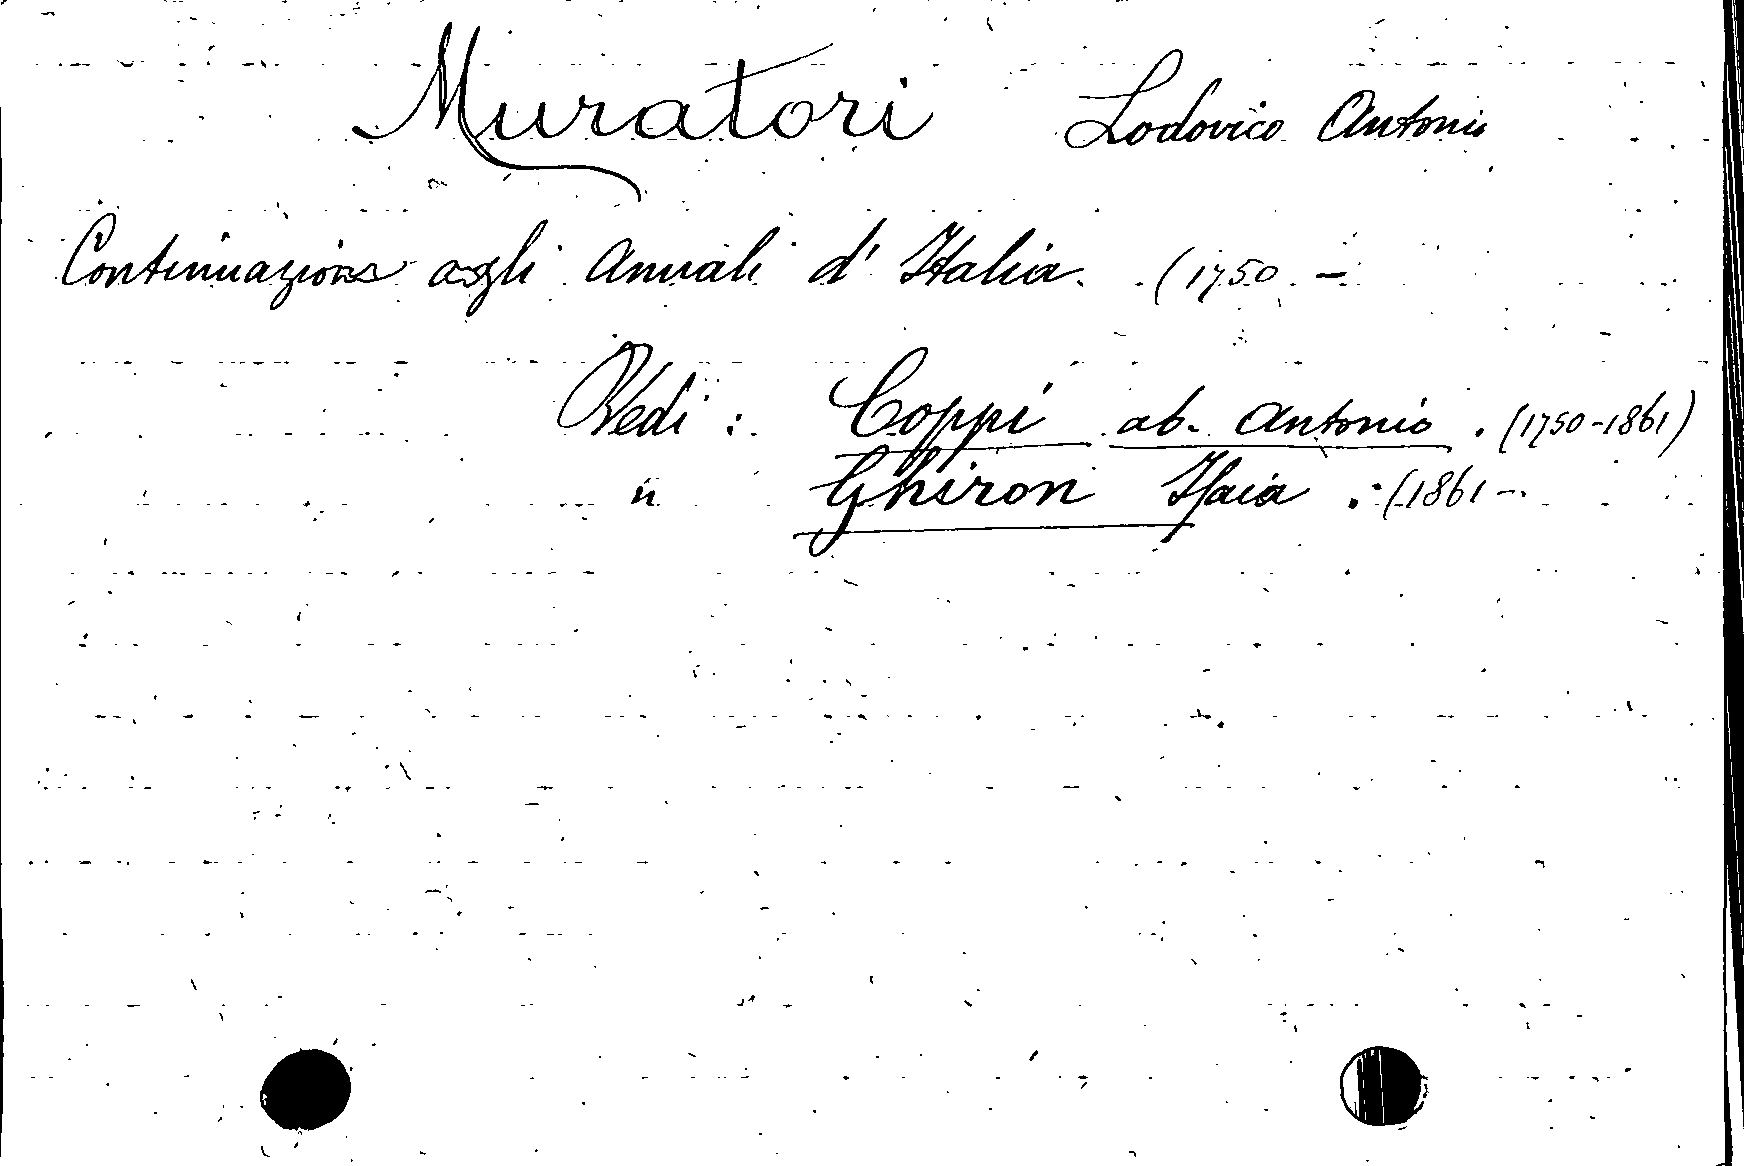 Muratori Lodovico Antonio
Continuazione agli Annali d' Italia. (1750 -
Vedi : Coppi ab. Antonio . (1750-1861)
" Ghiron Isaia . (1861 -